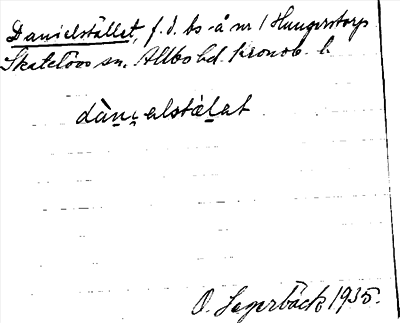 Danielstället, f. d. bs-å nr 1 Hungerstorp
Skatelövs sn. Allbo hd. Kronob. l.
dàni̯alstälat
O. Segerbäck 1935.